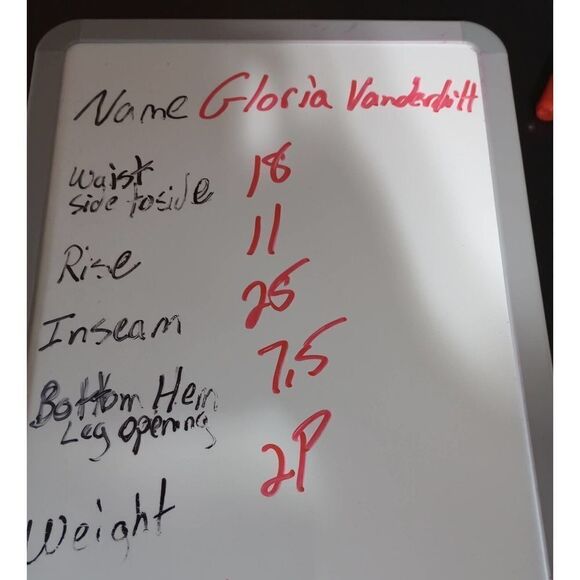 Name Gloria Vanderbilt
Waist 18
side to side
Rise 11
Inseam 25
Bottom Hem 7.5
Leg opening
Weight 2P